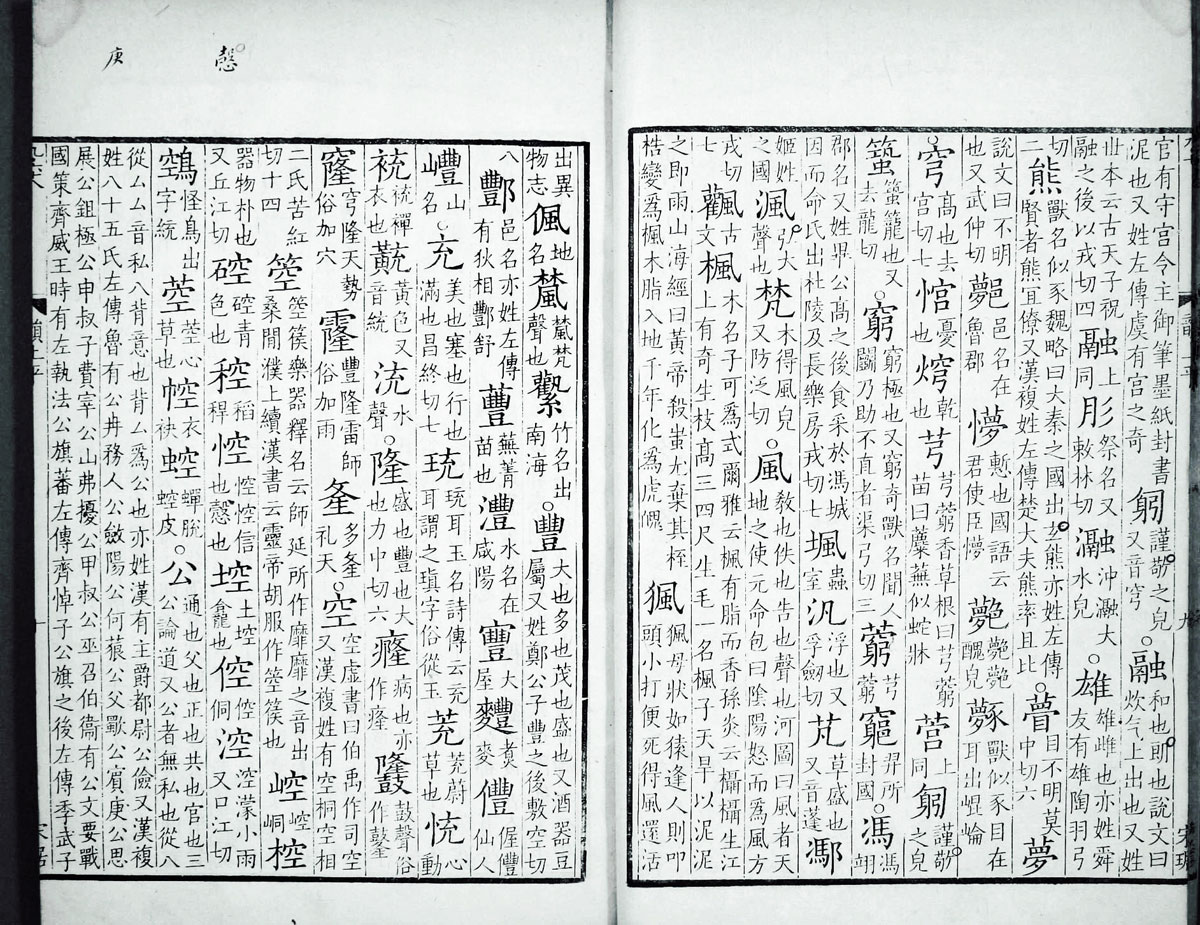 官有守宫令主御筆墨紙封書泥也又姓左傳虞有宫之奇 躳謹敬之皃又音穹 融和也朗也說文曰炊气上出也又姓
出本云古天子祝融之後以戎切四 融上同 肜祭名又敕林切 瀜沖瀜大水皃 雄雄雌也亦姓舜友有雄陶羽弓
切二 熊獸名似豕魏略曰大秦之國出玄熊亦姓左傳賢者熊宜僚又漢複姓左傳楚大夫熊率且比 瞢目不明莫中切六 夢
說文曰不明也又武仲切 鄸邑名在魯郡 懜慙也國語云君使臣懜 醜皃 獸似豕目在耳出崐崘
穹高也去宫切七 悺憂也 焪乾也 芎芎藭香草根曰芎藭苗曰蘪蕪似蛇牀 营上同 匑謹敬之皃
䖟籠也又去龍切 窮窮極也又窮奇獸名聞人鬬乃助不直者渠弓切三 藭芎藭 竆羿所封國 馮馮翊
郡名又姓畢公高之後食采於馮城因而命氏出杜陵及長樂房戎切七 堸蟲室 汎浮也又孚劒切 芃草盛也又音蓬 鄢
姬姓之國 渢弘大聲也 梵木得風皃又防泛切 風教也佚也告也聲也河圖曰風者天地之使元命包曰陰陽怒而爲風方
戎切七 飌古文 楓木名子可爲式爾雅云楓有脂而香孫炎云欇欇生江上有奇生枝高三四尺生毛一名楓子天旱以泥泥
之即雨山海經曰黃帝殺蚩尤棄其桎梏變爲楓木脂入地千年化爲虎魄 猦猦母狀如猿逢人則叩頭小打便死得風還活
庚 慤
出異物志 偑地名 檒檒梵聲也 竹名出南海 豐大也多也茂也盛也又酒器豆屬又姓鄭公子豐之後敷空切
八 酆邑名亦姓左傳有狄相酆舒 蘴蕪菁苗也 灃水名在咸陽 寷大屋 麷煑麥 僼偓僼仙人
㠦山名 充美也塞也行也滿也昌終切七 珫珫耳玉名詩傳云充耳謂之瑱字俗從玉 茺茺蔚草也 忱心動
祱祱襌衣也 黋黃色又音統 流水聲 隆盛也豐也大也力中切六 癃病也亦作㾖 鼓聲俗作
窿穹隆天勢俗加穴 霳豐隆雷師俗加雨 㚅多㚅礼天 空空虛書曰伯禹作司空又漢複姓有空桐空相
二氏苦紅切十四 箜箜篌樂器釋名云師延所作靡靡之音出桑閒濮上續漢書云靈帝胡服作箜篌也 崆崆峒 椌
器物朴也又丘江切 硿硿青色也 稑稻稈也 悾悾悾信也慤也 埪土埪龕也 倥倥侗 涳涳濛小雨又口江切
鵼怪鳥出字統 䓔䓔心草也 㡃衣袂 蛩蟬脫蛩皮 公通也父也正也共也官也三公論道又公者無私也從八
從厶厶音私八背意也背厶爲公也亦姓漢有主爵都尉公儉又漢複姓八十五氏左傳魯有公冉務人公斂陽公何藐公父歜公賓庚公思
展公鉏極公申叔子費宰公山弗擾公甲叔公巫召伯衞有公文要戰國策齊威王時有左執法公旗蕃左傳齊悼子公旗之後左傳季武子